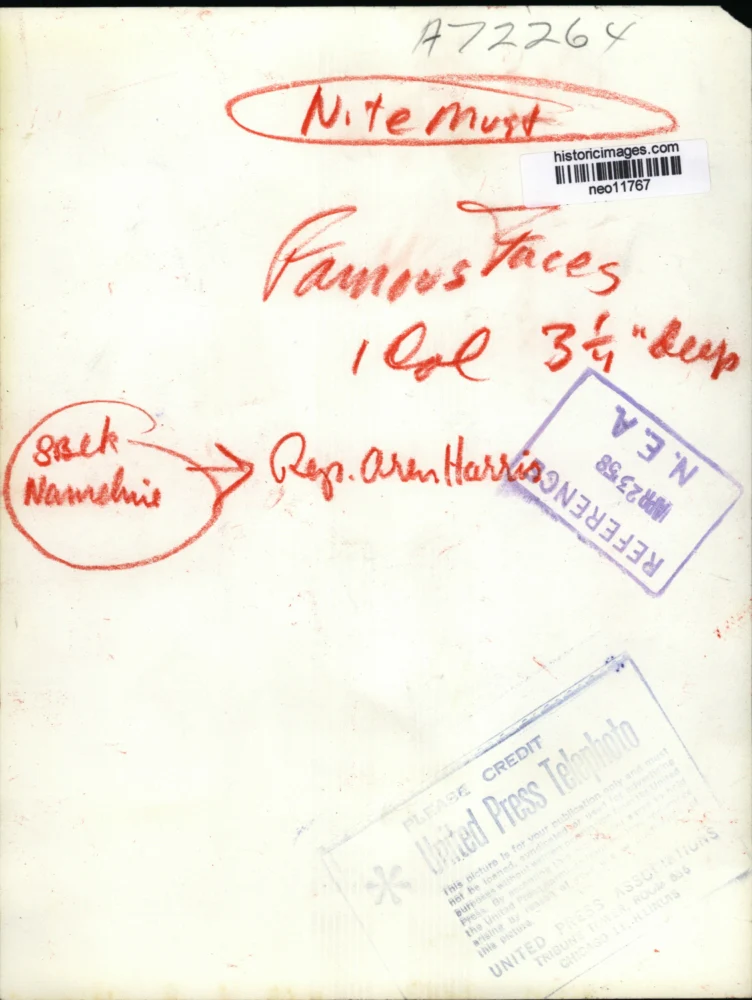 A72264
Nite Must
historicimages.com
neo11767
Famous Faces
1 Col 3 1/4" deep
8 Blk
Nameline
Rep. Oren Harris
REFERENCE
APR 23 58
N. E. A.
PLEASE CREDIT
United Press Telephoto
This picture is for your publication only and must
not be loaned, syndicated or used for advertising
purposes without written
the United Press
arising by reason of
this picture.
UNITED PRESS ASSOCIATIONS
TRIBUNE TOWER, ROOM 636
CHICAGO 11, ILLINOIS